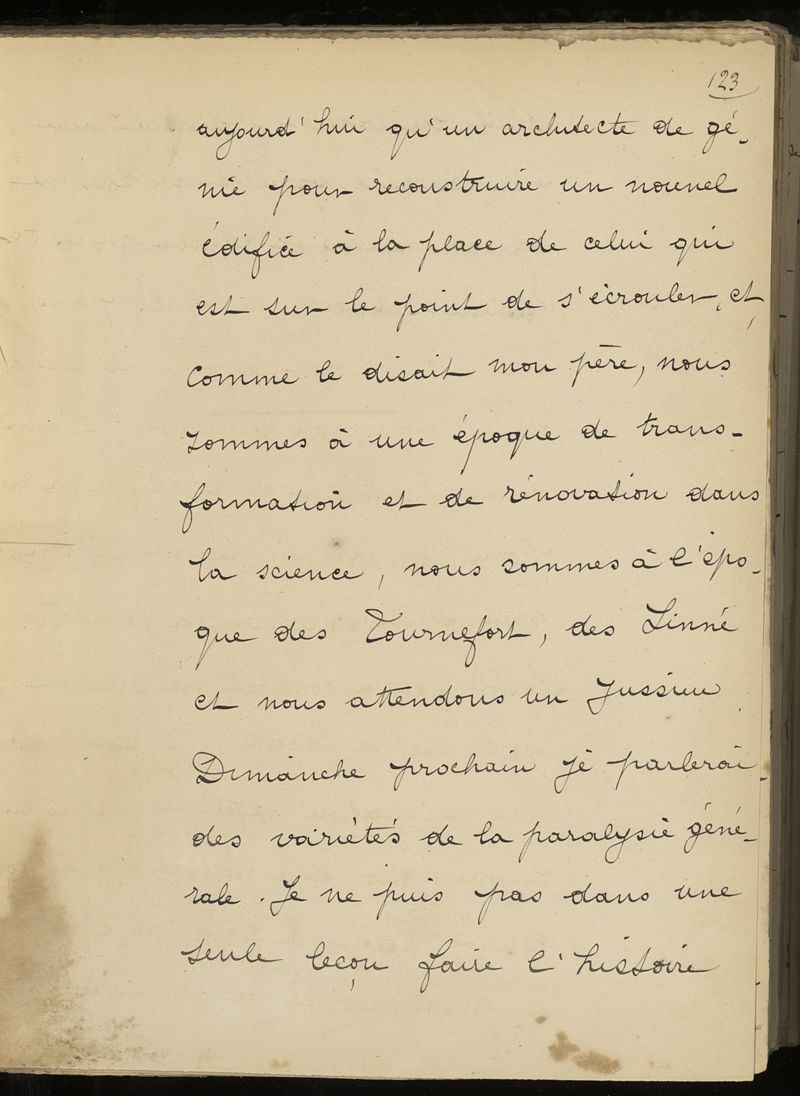 123
aujourd'hui qu'un architecte de gé-
nie pour reconstruire un nouvel
édifice à la place de celui qui
est sur le point de s'écrouler, et,
comme le disait mon père, nous
sommes à une époque de trans-
formation et de rénovation dans
la science, nous sommes à l'épo-
que des Tournefort, des Linné
et nous attendons un Jussieu.
Dimanche prochain je parlerai
des variétés de la paralysie géné-
rale. Je ne puis pas dans une
seule leçon faire l'histoire